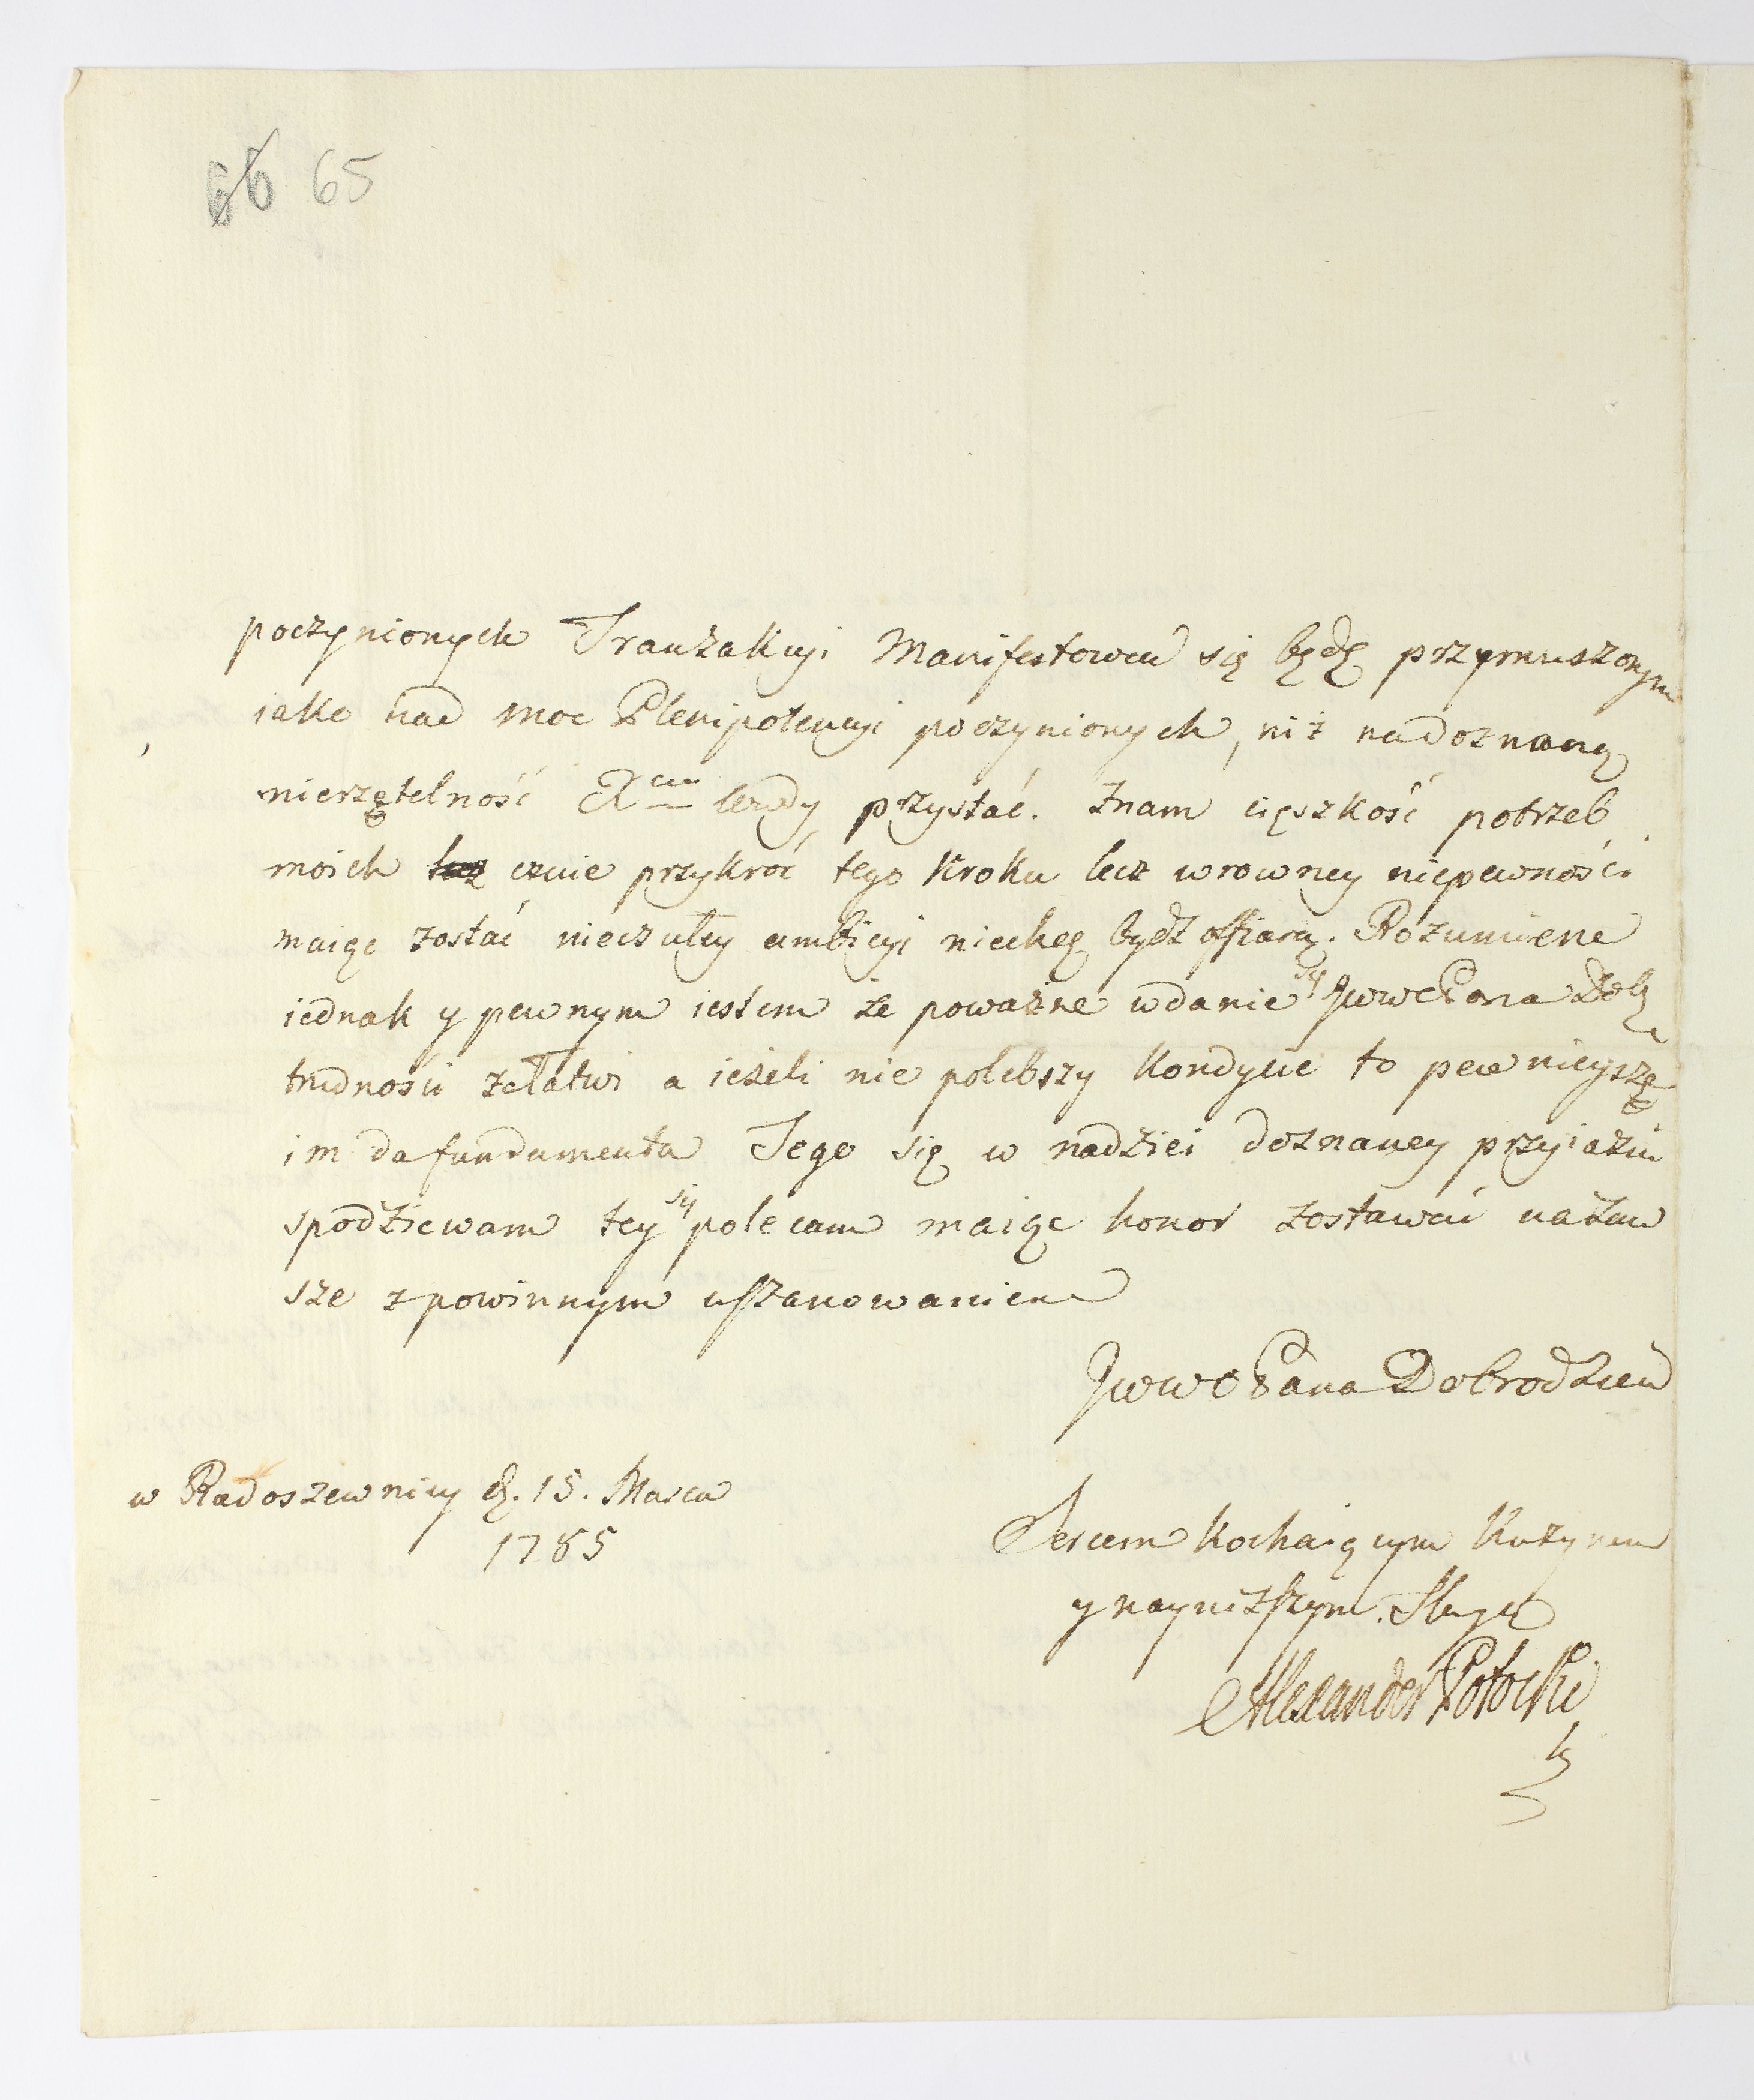 66 65
poczynionych Tranzakcyi Manifestować się będę przymuszonym
iako nad moc Plenipotencyi poczynionych, niż na doznaną
nierzętelność przystać. Znam cięszkość potrzeb
moich lecz czuie przykróć tego kroku lecz w rowney niepewności
maiąc zostać nieczułey ambicyi niechcę bydź offiarą. Rozumiene
iednak y pewnym iestem że poważne wdanie się JWWCPana Dob
trudności załatwi a ieżeli nie polebszy kondycie to pewnieyszę
im da fundamenta Tego się w nadziei doznaney przyiaźni
spodziewam tey się polecam maiąc honor zostawać na zaw
sze z powinnym uszanowaniem
JWWCPana Dobrodzieia
w Radoszewnicy d. 15. Marca
1785
Sercem kochaiącym Kuzynem
y nayniższym Sługą
Alexander Potocki